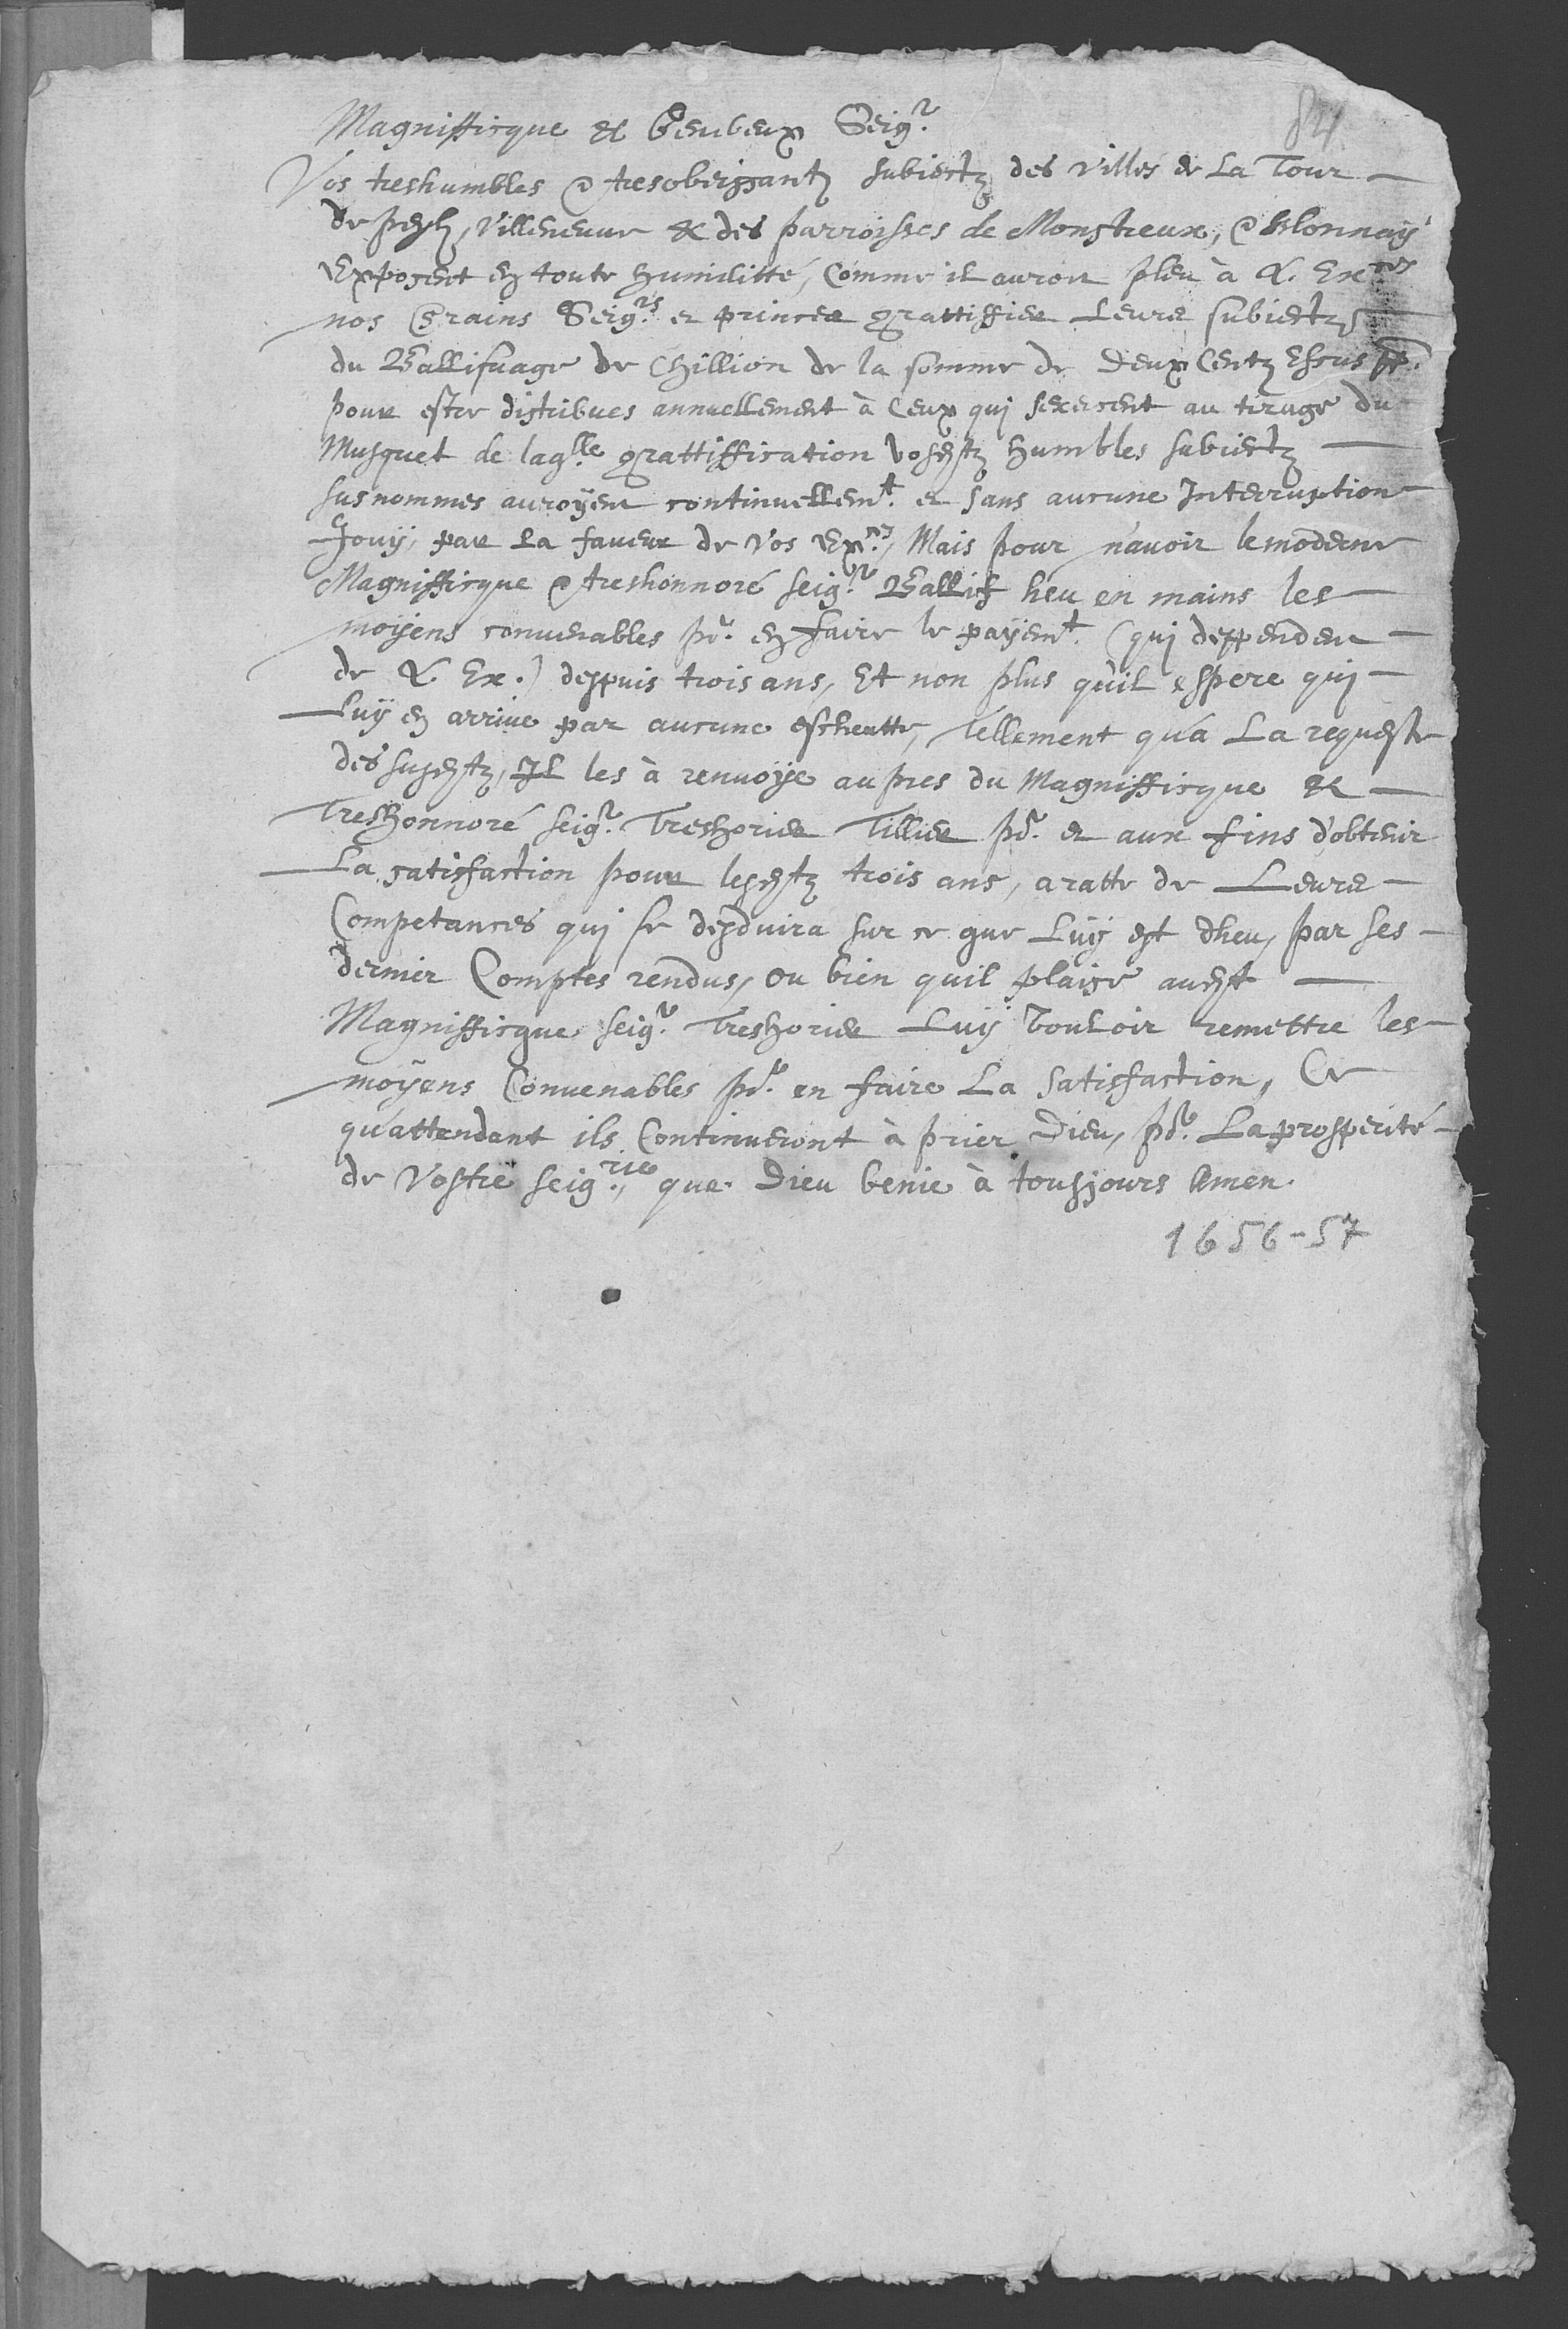 84
Magnifficque & Genereux Seigr.
Vos treshumbles & tresobeissantz subiectz des villes de La Tour
de peylz, Villeneuve & des parroisses de Monstreux, & Blonnay
Exposent en toute humilitté, Comme il auroit pleu à L. Exces
nos Sovrains Seigrs. et princes grattiffier Leurs subiectz
du Ballifvage de Chillion de la somme de Deux Centz Escus pp.
pour estre distribues annuellement à Ceux qui sexercent au tirage du
Musquet de laqlle grattiffication vosdtz humbles subiectz
susnommes auroyent continuellemt. et sans aucune Interruption
Jouÿ, par La faveur de Vos Exces, Mais pour n'avoir le moderne
Magnifficque & treshonnoré seigr. Ballif heu en mains les
moÿens convenables pr. en faire le payemt. (qui deppendent
de L. Ex.) deppuis trois ans, Et non plus quil espere qui
Luÿ en arrive par aucune escheutte, Tellement qu'a La requeste
des susdtz, Il les à renvoÿe aupres du Magnifficque &
Treshonnoré seigr. Treshorier Tillier pr. et aux fins d'obtenir
La satisfaction pour lesdtz trois ans, a ratte de Leurs
Competances qui se desduira sur ce que Luÿ est dheu, par ses
dernier Comptes rendus, ou bien quil plaise audt
Magnifficque seigr. Treshorier Luÿ vouloir remettre les
moÿens Convenables pr. en faire La Satisfaction, Ce
qu'attendant ils Continueront à prier Dieu, pr. La prosperité
de Vostre seigrie, que Dieu benie à tousjours Amen.
1656-57